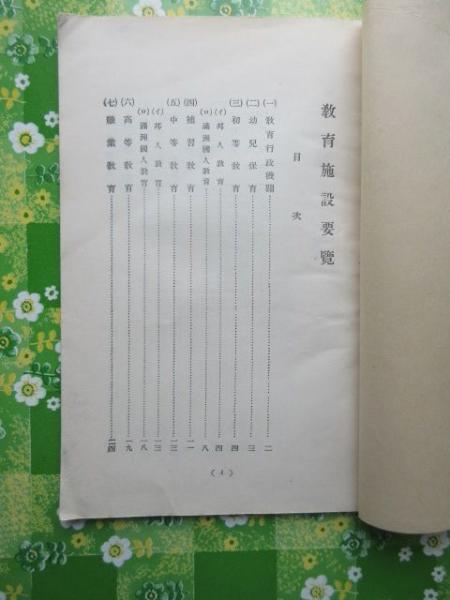 教育施設要覽
目次
(一) 教育行政機關 二
(二) 幼兒保育 三
(三) 初等教育 四
(イ) 邦人教育 四
(ロ) 滿洲國人教育 八
(四) 補習教育 一一
(五) 中等教育 一三
(イ) 邦人教育 一三
(ロ) 滿洲國人教育 一八
(六) 高等教育 一九
(七) 職業教育 二四
(1)